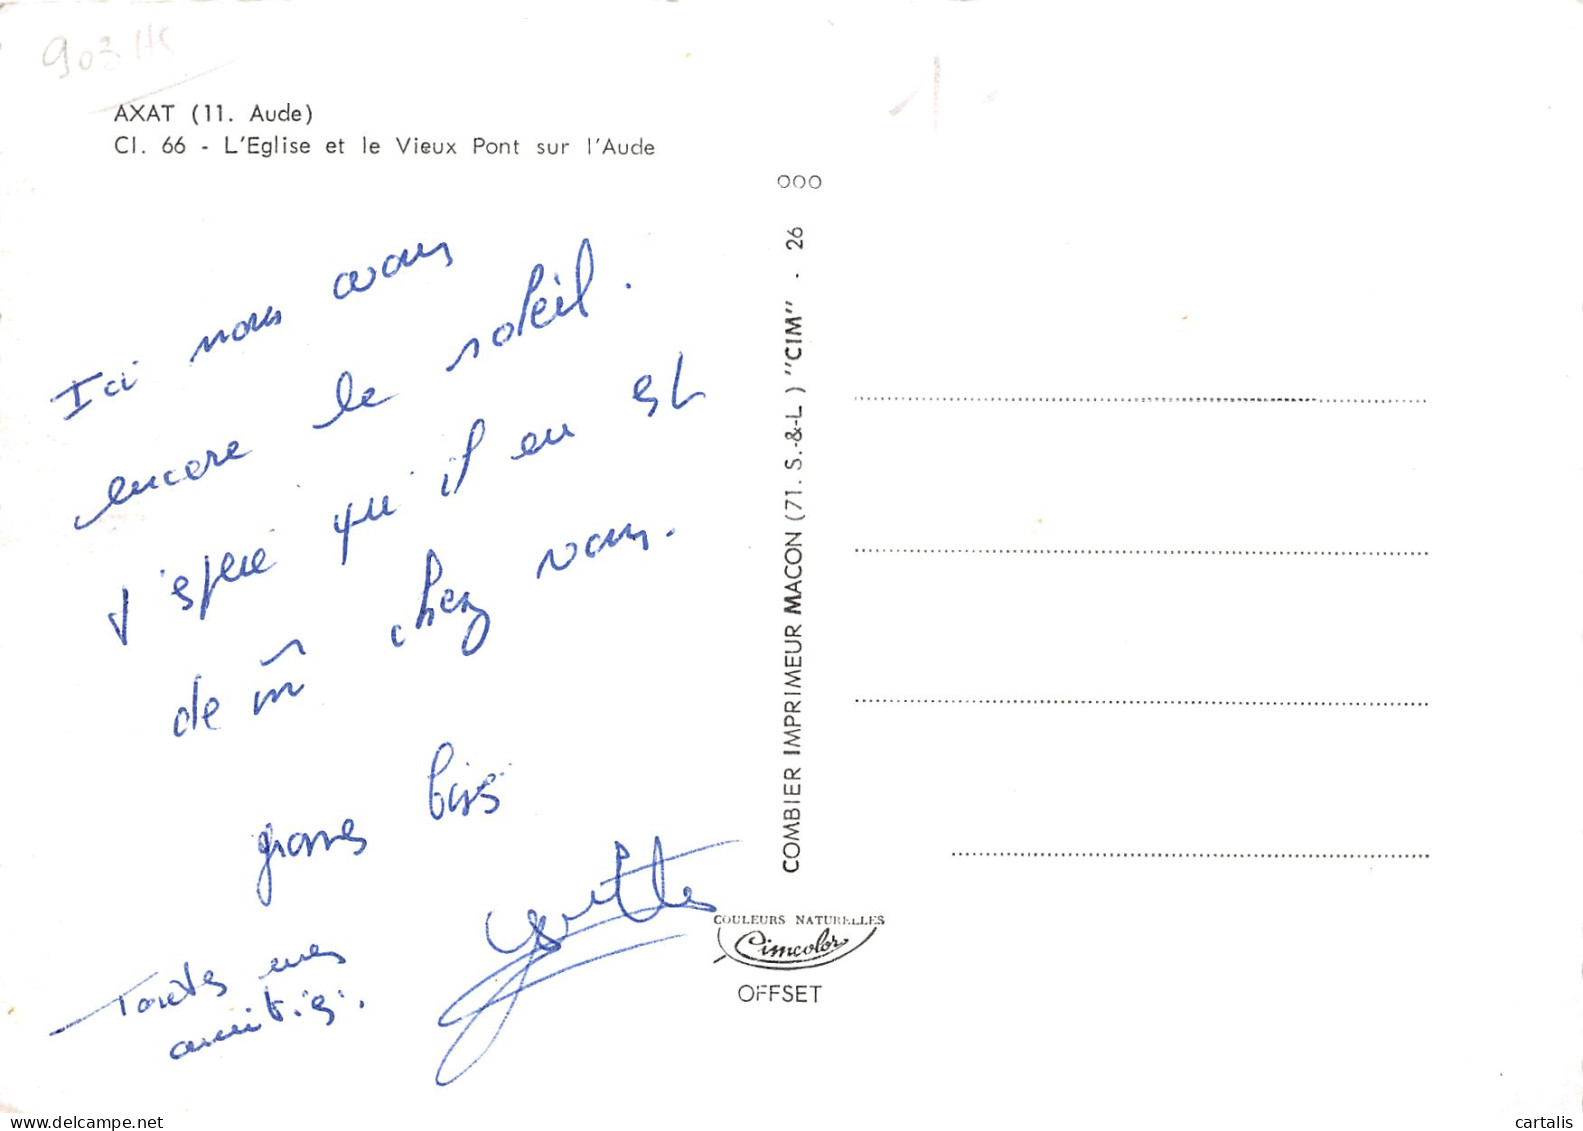 AXAT (11. Aude)
CI. 66 - L'Eglise et le Vieux Pont sur l'Aude
Ici nous avons
encore le soleil.
J'espère qu'il en est
de m̃ chez vous.
grosses bises
Toutes mes
amitiés.
Yvette
000
COMBIER IMPRIMEUR MACON (71. S.-&-L.) "CIM" - 26
COULEURS NATURELLES
Cimcolor
OFFSET
www.delcampe.net
cartalis